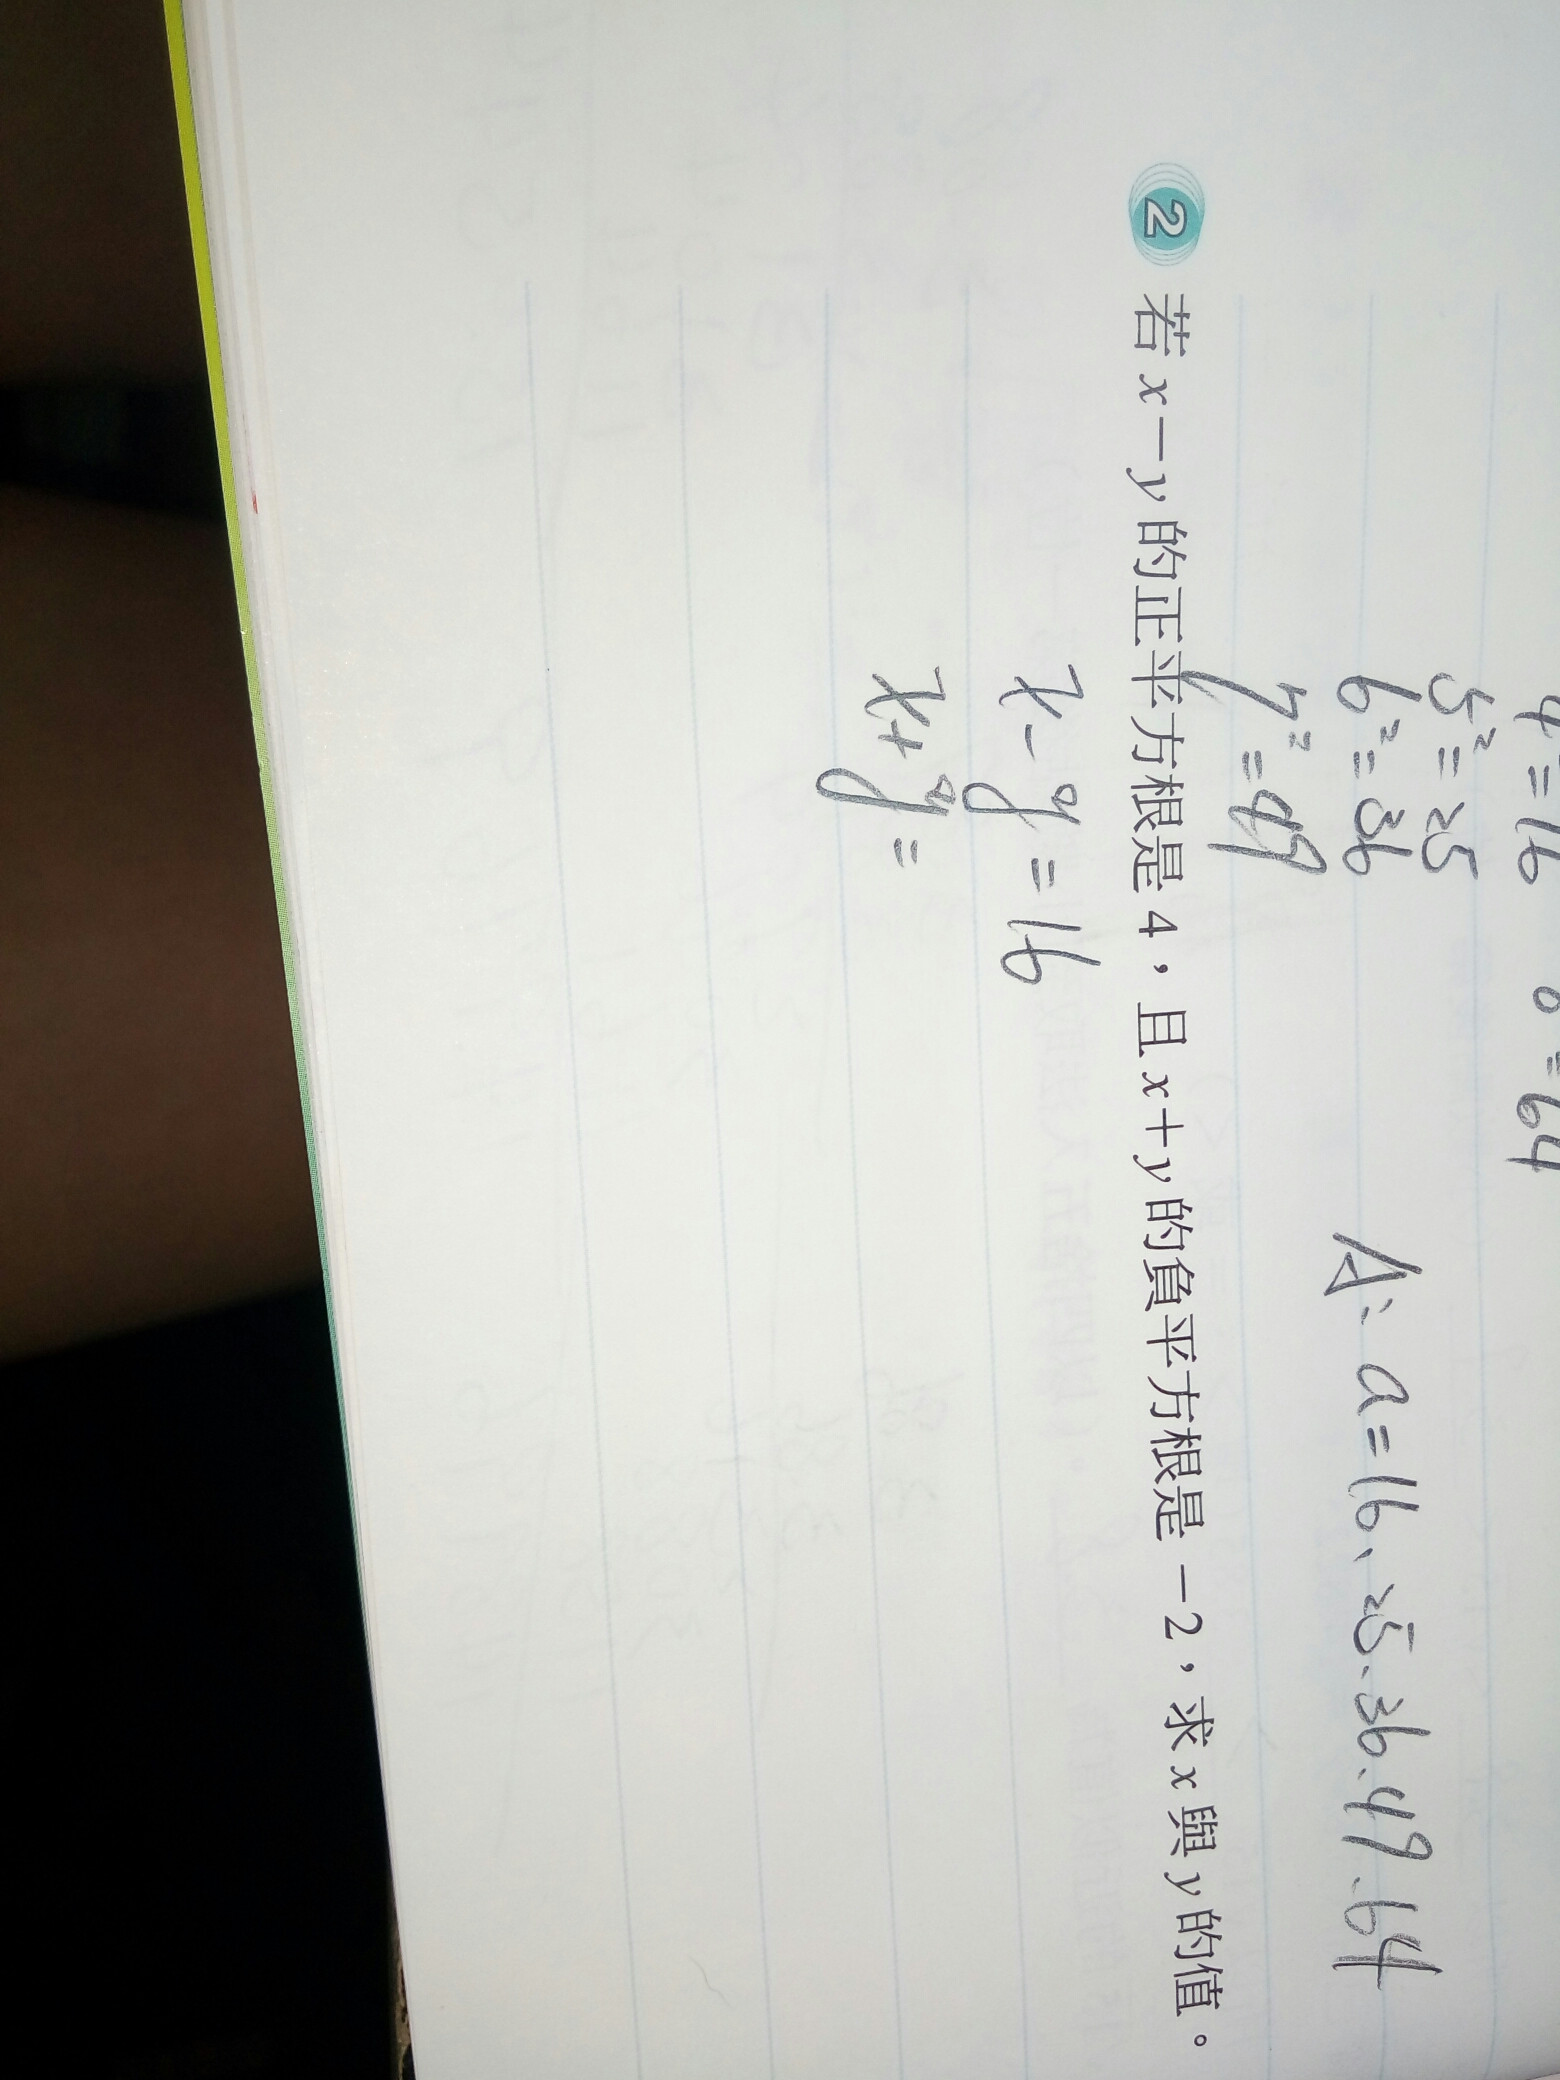 4²=16 8²=64
5²=25
6²=36
7²=49
A: a=16、25、36、49、64
2 若x－y的正平方根是4，且x＋y的負平方根是－2，求x與y的值。
x-y=16
x+y=